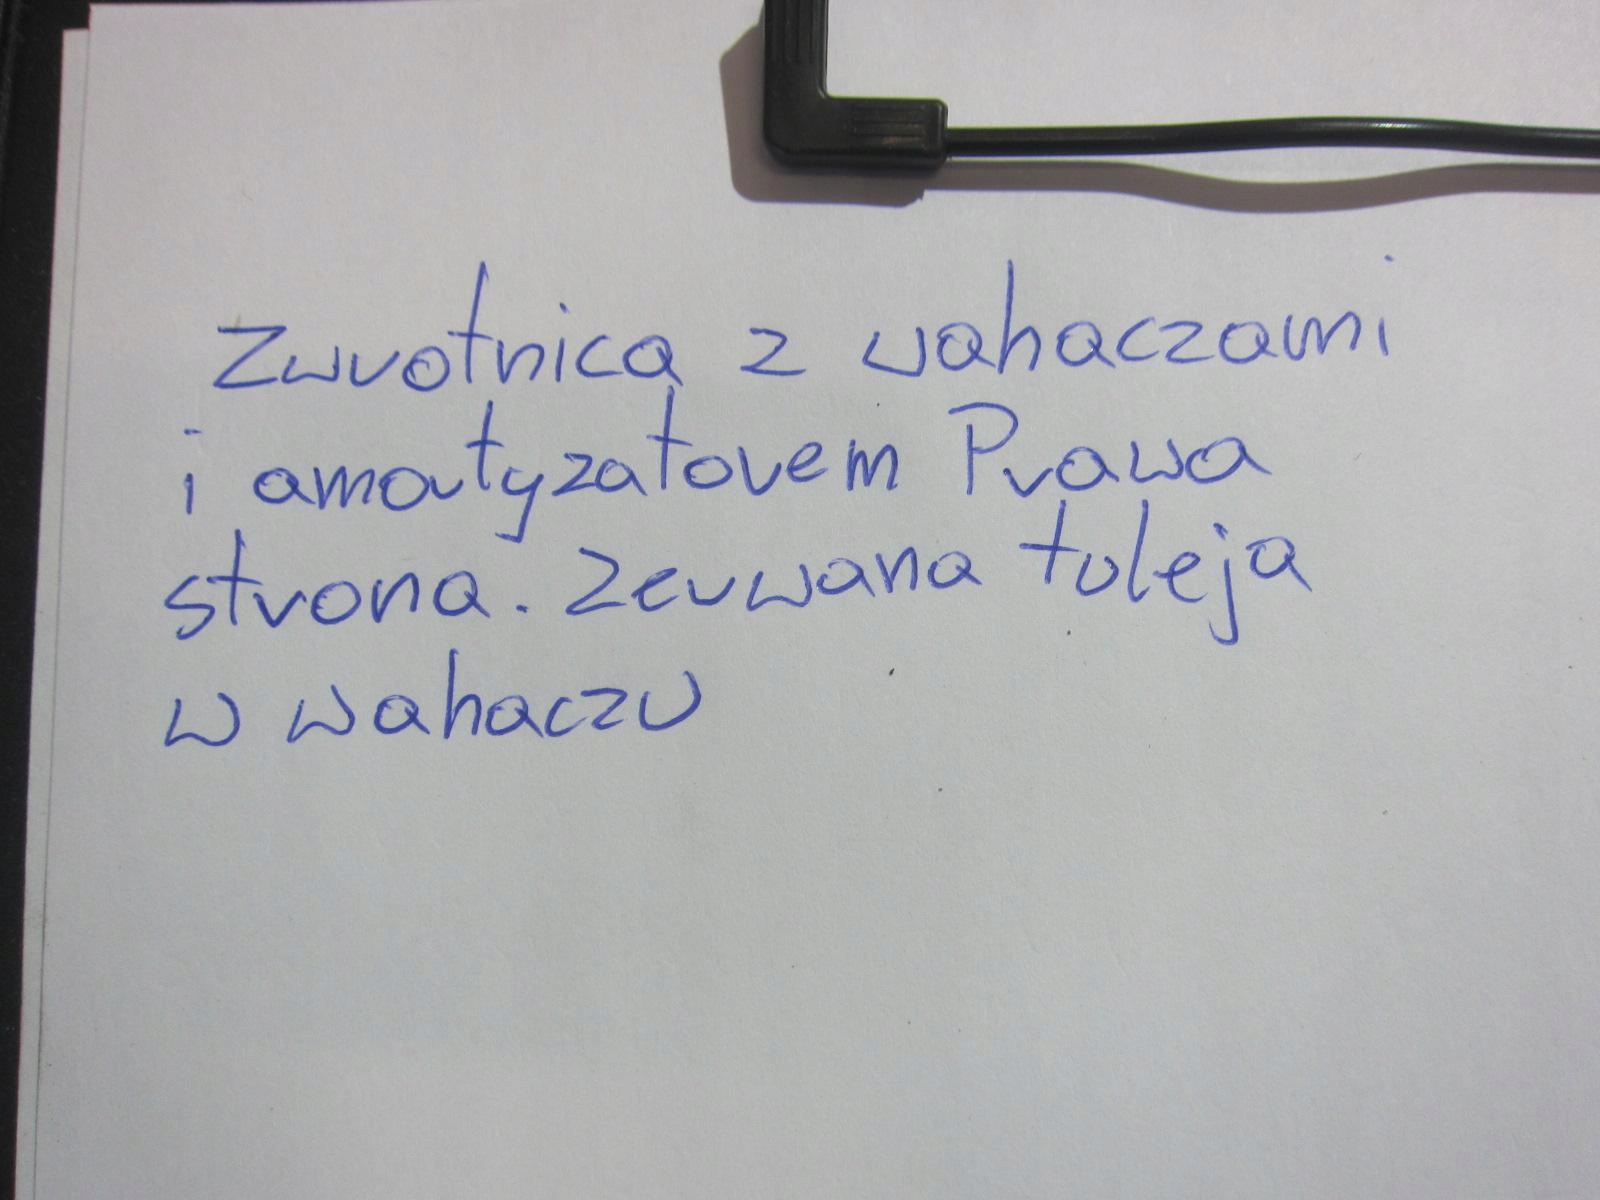 Zwrotnica z wahaczami
i amortyzatorem Prawa
strona. Zerwana tuleja
w wahaczu